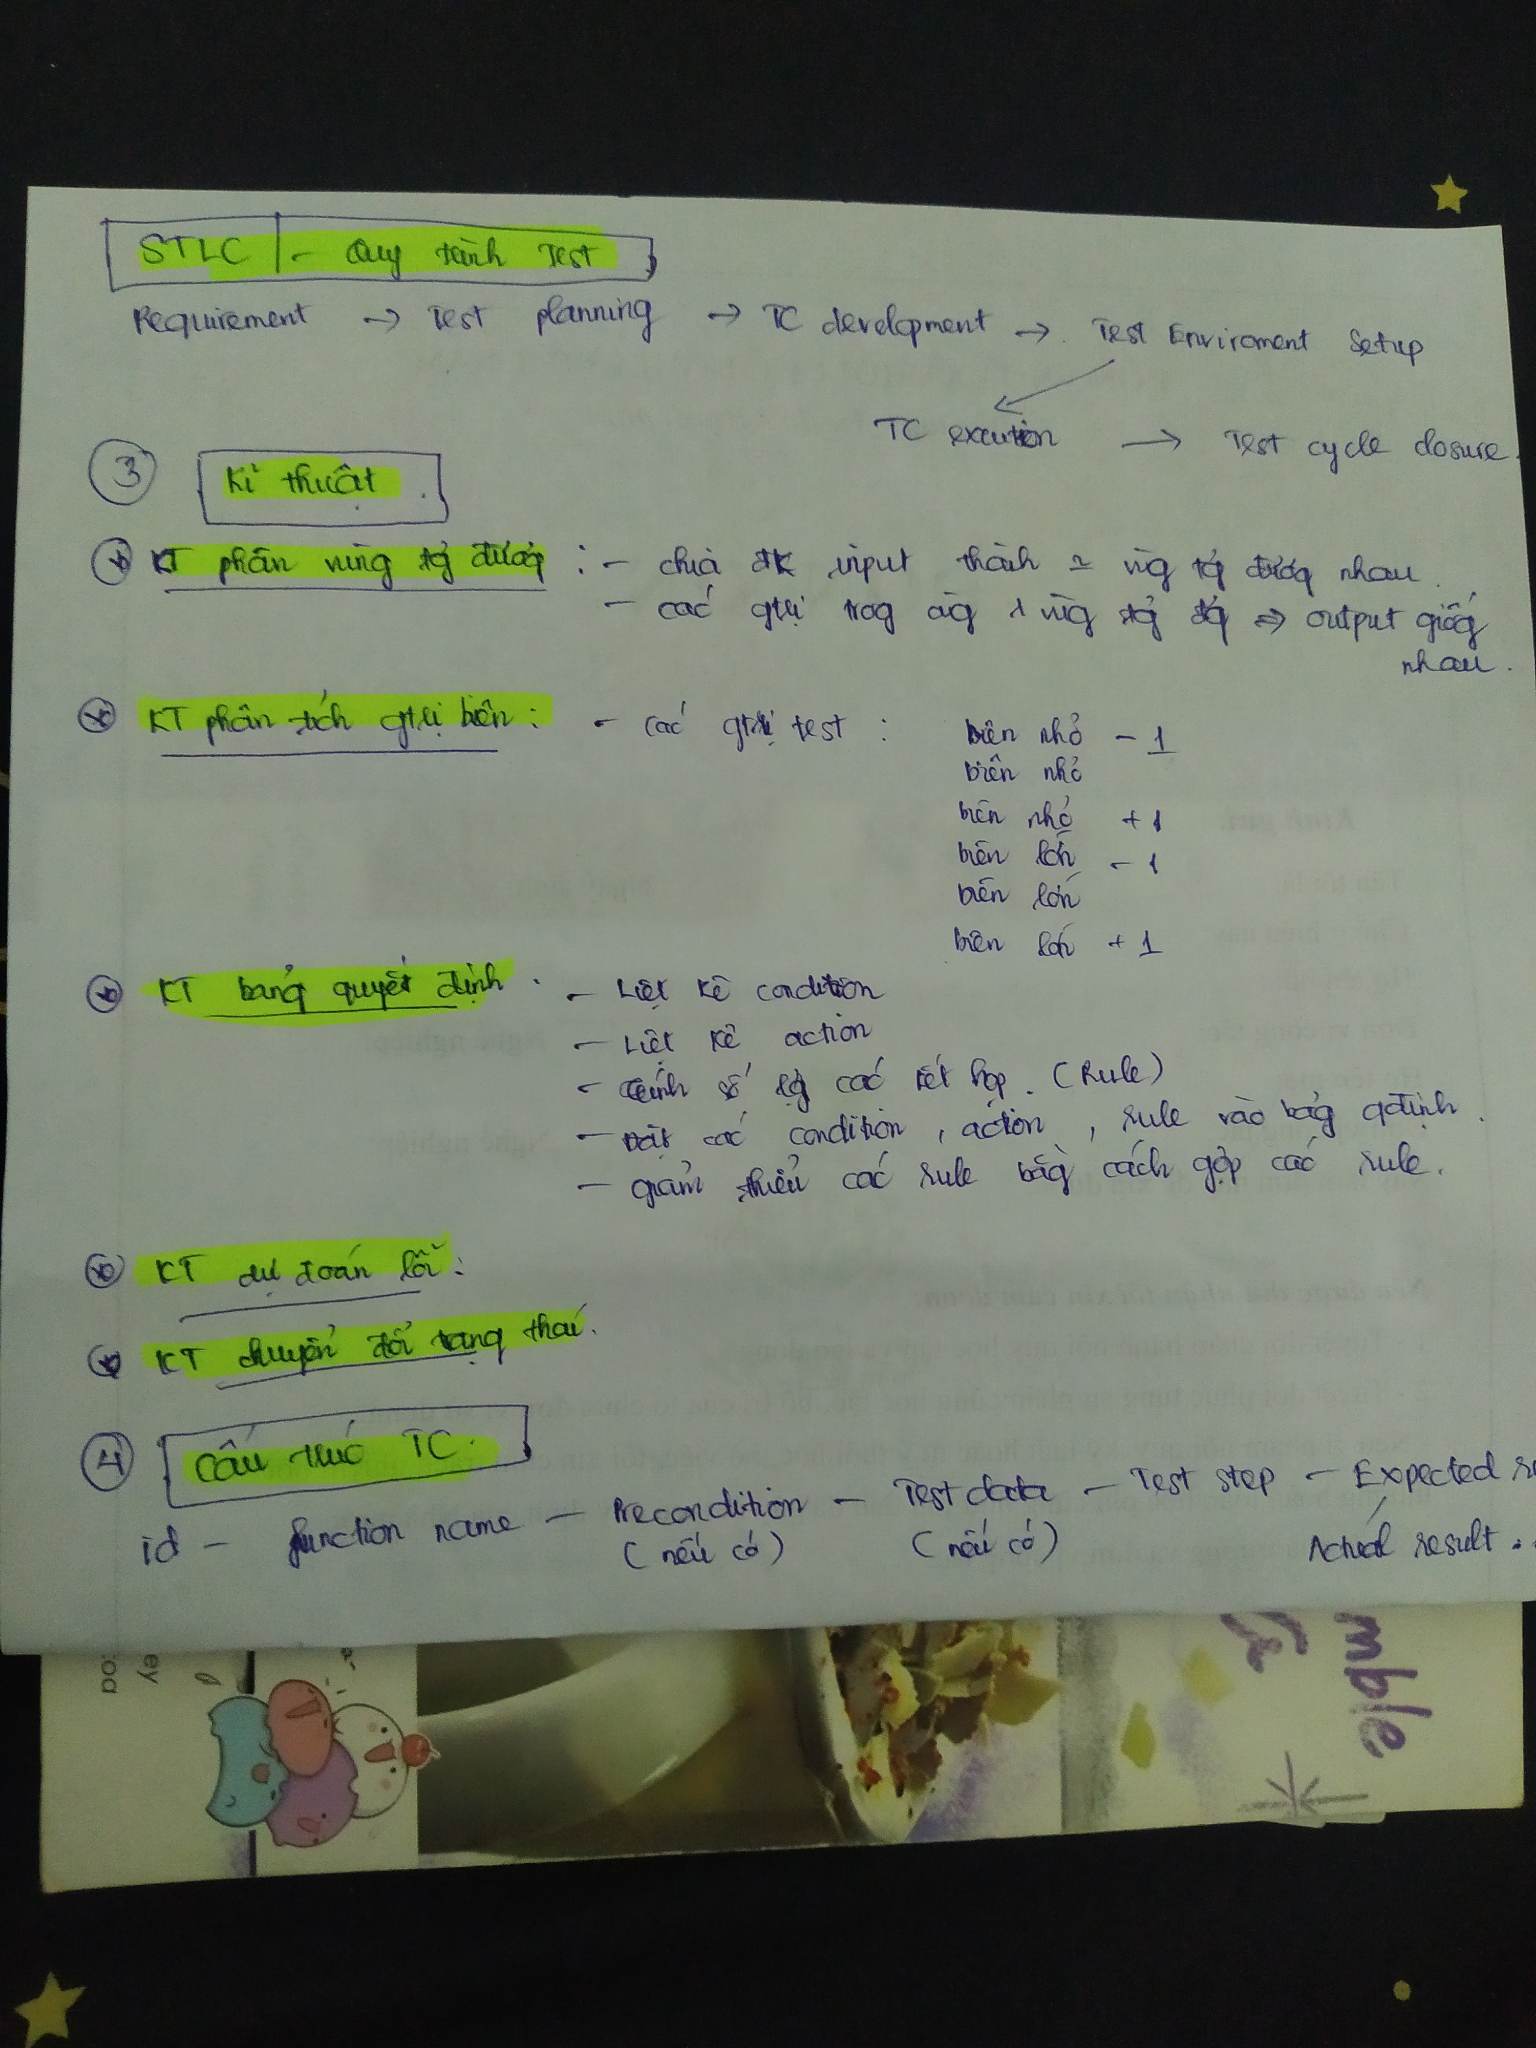 STLC - Quy trình Test
Requirement → Test planning → TC development → Test Enviroment Setup
TC excution → Test cycle closure.
3 Kĩ thuật.
KT phân vùng tg đương : - chia đk input thành vùng tg đươg nhau.
- các gtrị trog cùg 1 vùg tg đg ⇒ output giốg
nhau.
KT phân tích gtrị biên : - các gtrị test :
biên nhỏ - 1
biên nhỏ
biên nhỏ + 1
biên lớn - 1
biên lớn
biên lớn + 1
KT bảng quyết định . - Liệt kê condition
- Liệt kê action
- tính số lg các kết hợp. (Rule)
- Đặt các condition, action, rule vào bảg qđịnh.
- giảm thiểu các rule bằg cách gộp các rule.
KT dự đoán lỗi :
KT chuyển đổi trạng thái.
4 Cấu trúc TC.
id - function name - Precondition - Test data - Test step - Expected
(nếu có) (nếu có) Actual result..
mble
ey